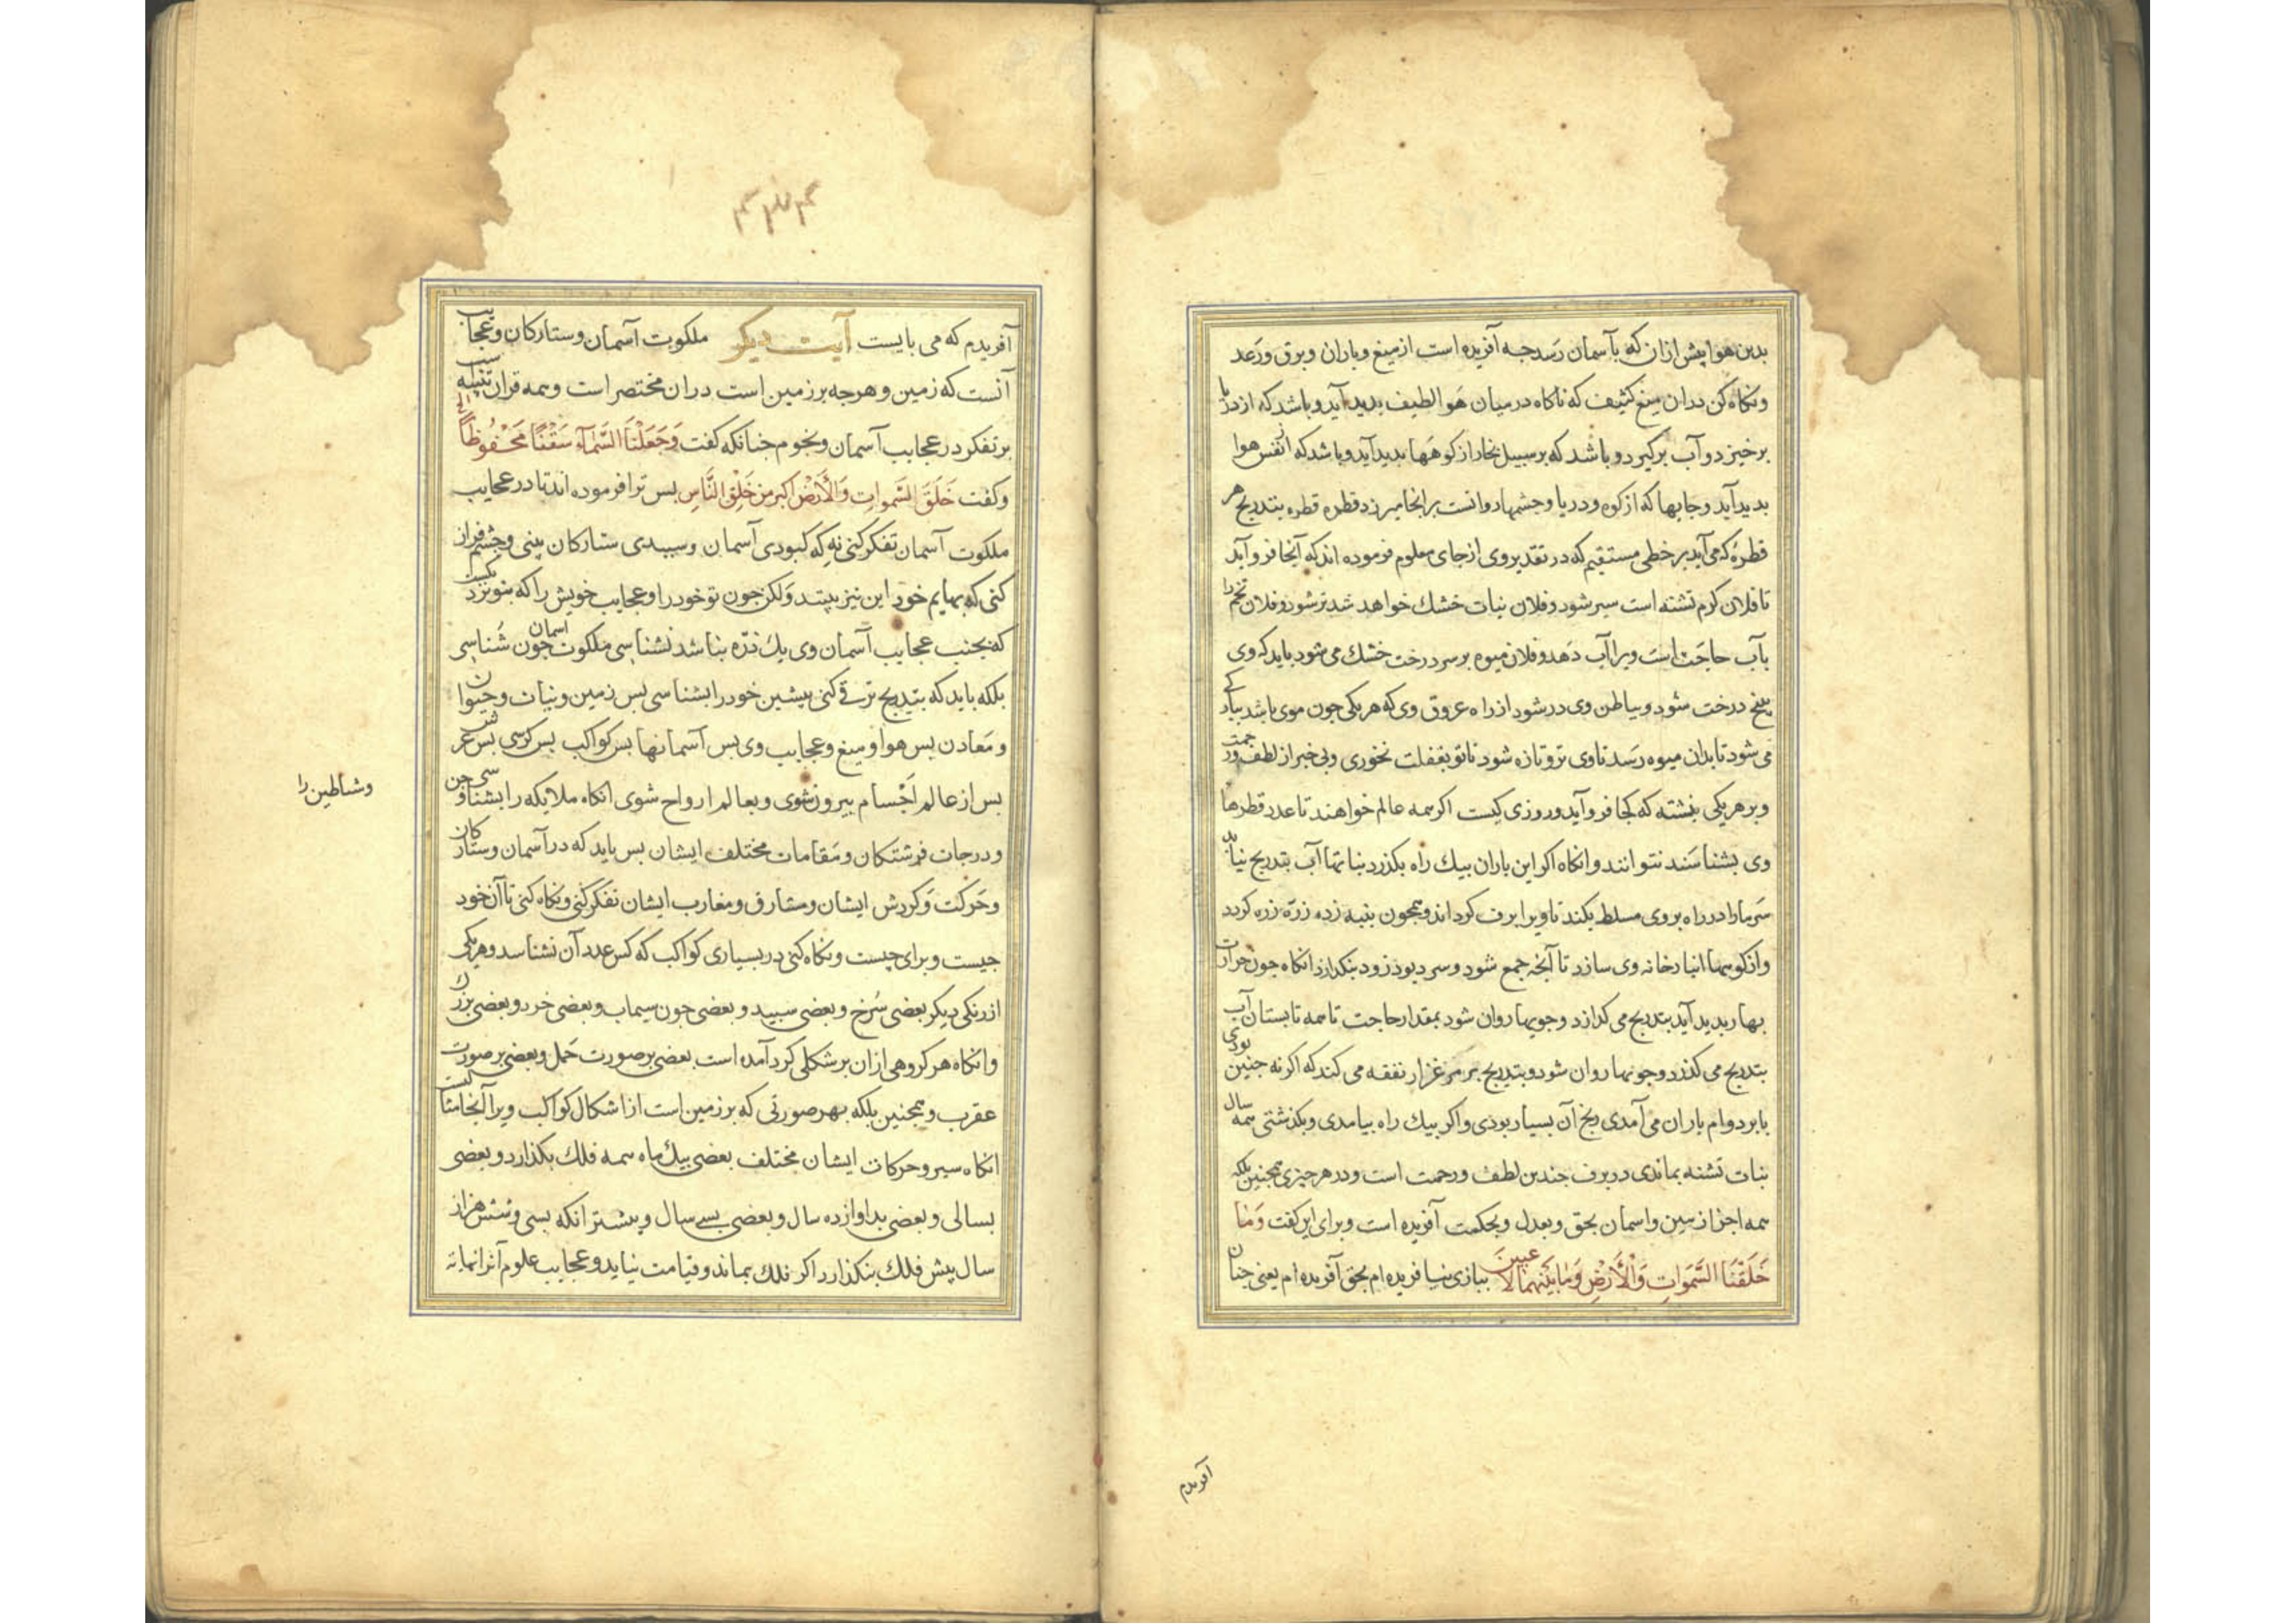 بدین هوا پیش ازان که بآسمان رسد جه آفریده است از میغ و باران و برق و رَعد
و نکاه کن دران میغ کثیف که ناکاه در میان هَوا لطیف بدید آید و باشد که از دریا
برخیزد و آب برکیرد و باشد که بر سبیل بخار از کوهها بدید آید و باشد که از نفس هوا
بدید آید و جایها که از کوه و دریا و جشمها دورانست برانجا میریزد قطره قطره بتدریج هر
قطرهٔ که می آید بر خطی مستقیم که در تقدیر وی از جای معلوم فرموده اند که آنجا فرو آید
تا فلان کرم تشنه است سیر شود و فلان نبات خشک خواهد شد تر شود و فلان تخم را
بآب حاجَت است ویرا آب دَهد و فلان میوه بر سر درخت خشک می شود باید که وی
بیخ درخت شود و بباطن وی در شود از راه عروق وی که هر یکی جون موی باشد بباریکی
می شود تا بدان میوه رَسد تا وی تر و تازه شود تا تو بغفلت بخوری و بی خبر از لطف و رحمت
و بر هر یکی بنشته که کجا فرو آید و روزی کیست اکر همه عالم خواهند تا عدد قطرها
وی بشناسَند نتوانند و انکاه اکر این باران بیک راه بکذرد نباتها آب بتدریج نیابد
سَرما را در راه بر وی مسلط بکند تا ویرا برف کرداند و همجون بنبه زده زرّه زره کردد
و از کوهها انبار خانه وی سازد تا آنجه جمع شود و سرد بود زود بنکدازد انکاه جون حرارت
بهار بدید آید بتدریج می کدازد و جویها روان شود بمقدار حاجت تا همه تابستان آب
بتدریج می کذرد و جویها روان شود و بتدریج بر مرغزار نفقه می کند که اکر نه جنین بودی
یا بر دوام باران می آمدی رنج آن بسیار بودی و اکر بیک راه بیامدی و بکذشتی همه سال
نبات تشنه بماندی در برف جندین لطف و رحمت است و در هر جیزی همجنین بلکه
همه اجزا زمین و اسمان بحق و بعدل و بحکمت آفریده است و برای این کفت وَمَا
خَلَقْنَا السَّمَوَاتِ وَالْأَرْضِ وَمَا بَیْنَهُمَا لاعبینَ ببازی نیافریده ام بحق آفریده ام یعنی جنان
آفریدم
آفریدم که می بایست آیت دیکر ملکوت آسمان و ستارکان و عجایب
آنست که زمین و هر جه بر زمین است دران مختصر است و همه قران تنبیه است
بر تفکر در عجایب آسمان و نجوم جنانکه کفت وَجَعَلْنَا السَّمَآءَ سَقْفًا مَحْفُوظًا
و کفت خَلَقَ السَّمواتِ وَالْأَرْضِ اکبر من خَلْقِ النَّاسِ بس ترا فرموده اند تا در عجایب
ملکوت آسمان تفکر کنی نه که کبودی آسمان و سبیدی ستارکان بینی و جشم فراز
کنی که بهایم خود این نیز بیند وَلکن جون تو خود را و عجایب خویش را که بتو نزدیکست
که بجنب عجایب آسمان وی یک ذرّه نباشد نشناسی ملکوت اسمان جون شَناسی
بلکه باید که بتدریج ترقی کنی بیشین خود را بشناسی بس زمین و نبات و حیوان
و مَعادن بس هوا و میغ و عجایب وی بس آسمانها بس کواکب بس کرسی بس عرش
بس از عالم اجْسام بیرون شوی و بعالم ارواح شوی انکاه ملایکه را بشناسی و جن
و شیاطین را
و درجات فرشتکان و مَقامات مختلف ایشان بس باید که در آسمان و ستارکان
و حَرکت وَکردش ایشان و مشارق و مغارب ایشان تفکر کنی و نکاه کنی تا آن خود
جیست و برای چیست و نکاه کنی در بسیاری کواکب که کس عدد آن نشناسد و هر یکی
از رنکی دیکر بعضی سُرخ و بعضی سبید و بعضی جون سیماب و بعضی خرد و بعضی بزرک
و انکاه هر کروهی ازان بر شکلی کرد آمده است بعضی بر صورت حَمل و بعضی بر صورت
عقرب و همجنین بلکه بهر صورتی که بر زمین است از اشکال کواکب ویرا آنجا مثالیست
انکاه سیر و حرکات ایشان مختلف بعضی بیک ماه همه فلک بکذارد و بعضی
بسالی و بعضی بدوازده سال و بعضی بسی سال و بیشتر انکه بسی و شش هزار
سال بیش فلک بنکذارد اکر فلک بماند و قیامت نیاید و عجایب علوم آنرا نهایة